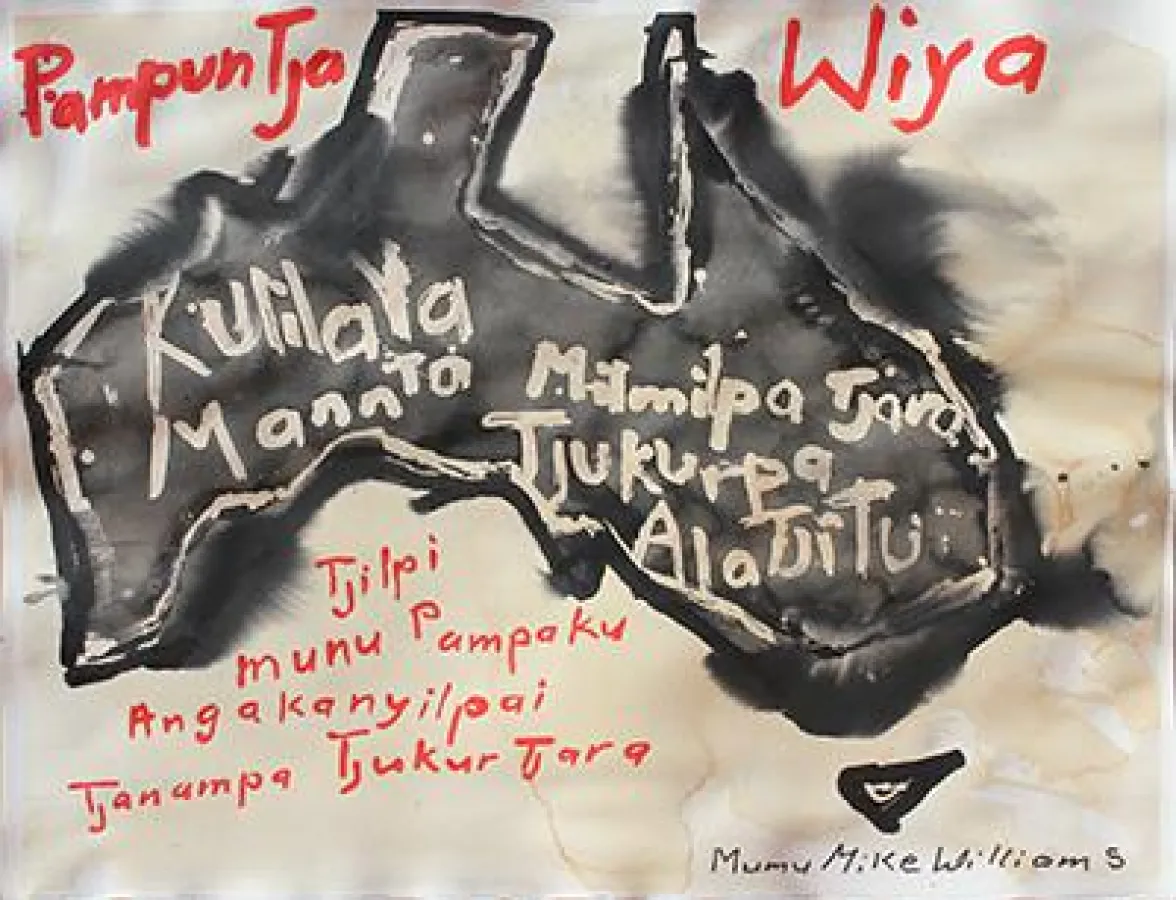 Pampuntja Wiya
Kulilaya
Mannta
Milmilpa Tjara
Tjukurpa
Alatjitu
Tjilpi
munu Pampaku
Angakanyilpai
Tjanampa Tjukur Tjara
Mumu Mike Williams